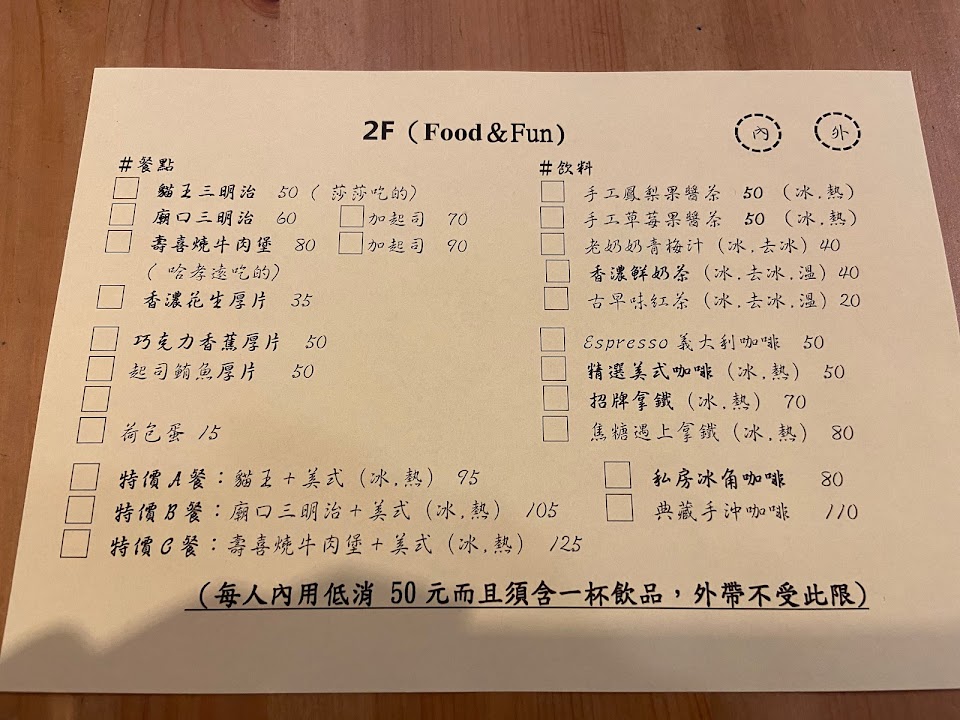 2F (Food & Fun)
內 外
#餐點
貓王三明治 50 (莎莎吃的)
廟口三明治 60 加起司 70
壽喜燒牛肉堡 80 加起司 90
(哈孝遠吃的)
香濃花生厚片 35
巧克力香蕉厚片 50
起司鮪魚厚片 50
荷包蛋 15
#飲料
手工鳳梨果醬茶 50 (冰.熱)
手工草莓果醬茶 50 (冰.熱)
老奶奶青梅汁 (冰.去冰) 40
香濃鮮奶茶 (冰.去冰.溫) 40
古早味紅茶 (冰.去冰.溫) 20
Espresso 義大利咖啡 50
精選美式咖啡 (冰.熱) 50
招牌拿鐵 (冰.熱) 70
焦糖遇上拿鐵 (冰.熱) 80
特價A餐:貓王+美式 (冰.熱) 95
特價B餐:廟口三明治+美式 (冰.熱) 105
特價C餐:壽喜燒牛肉堡+美式 (冰.熱) 125
私房冰角咖啡 80
典藏手沖咖啡 110
(每人內用低消 50 元而且須含一杯飲品,外帶不受此限)